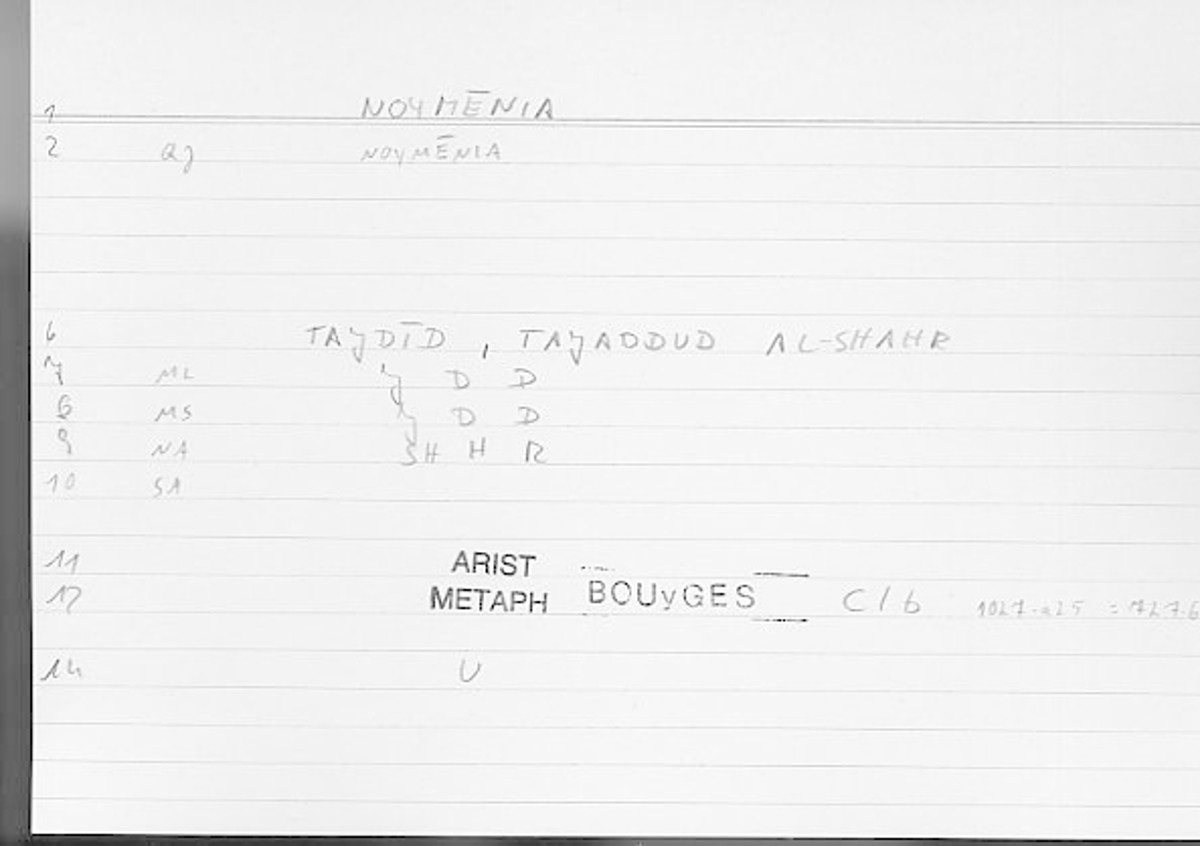 1 NOYMĒNIA
2 aj NOYMĒNIA
6 TAJDĪD, TAJADDUD AL-SHAHR
7 ML J D D
8 MS J D D
9 NA SH H R
10 SA
11 ARIST
12 METAPH BOUyGES C/6
14 U